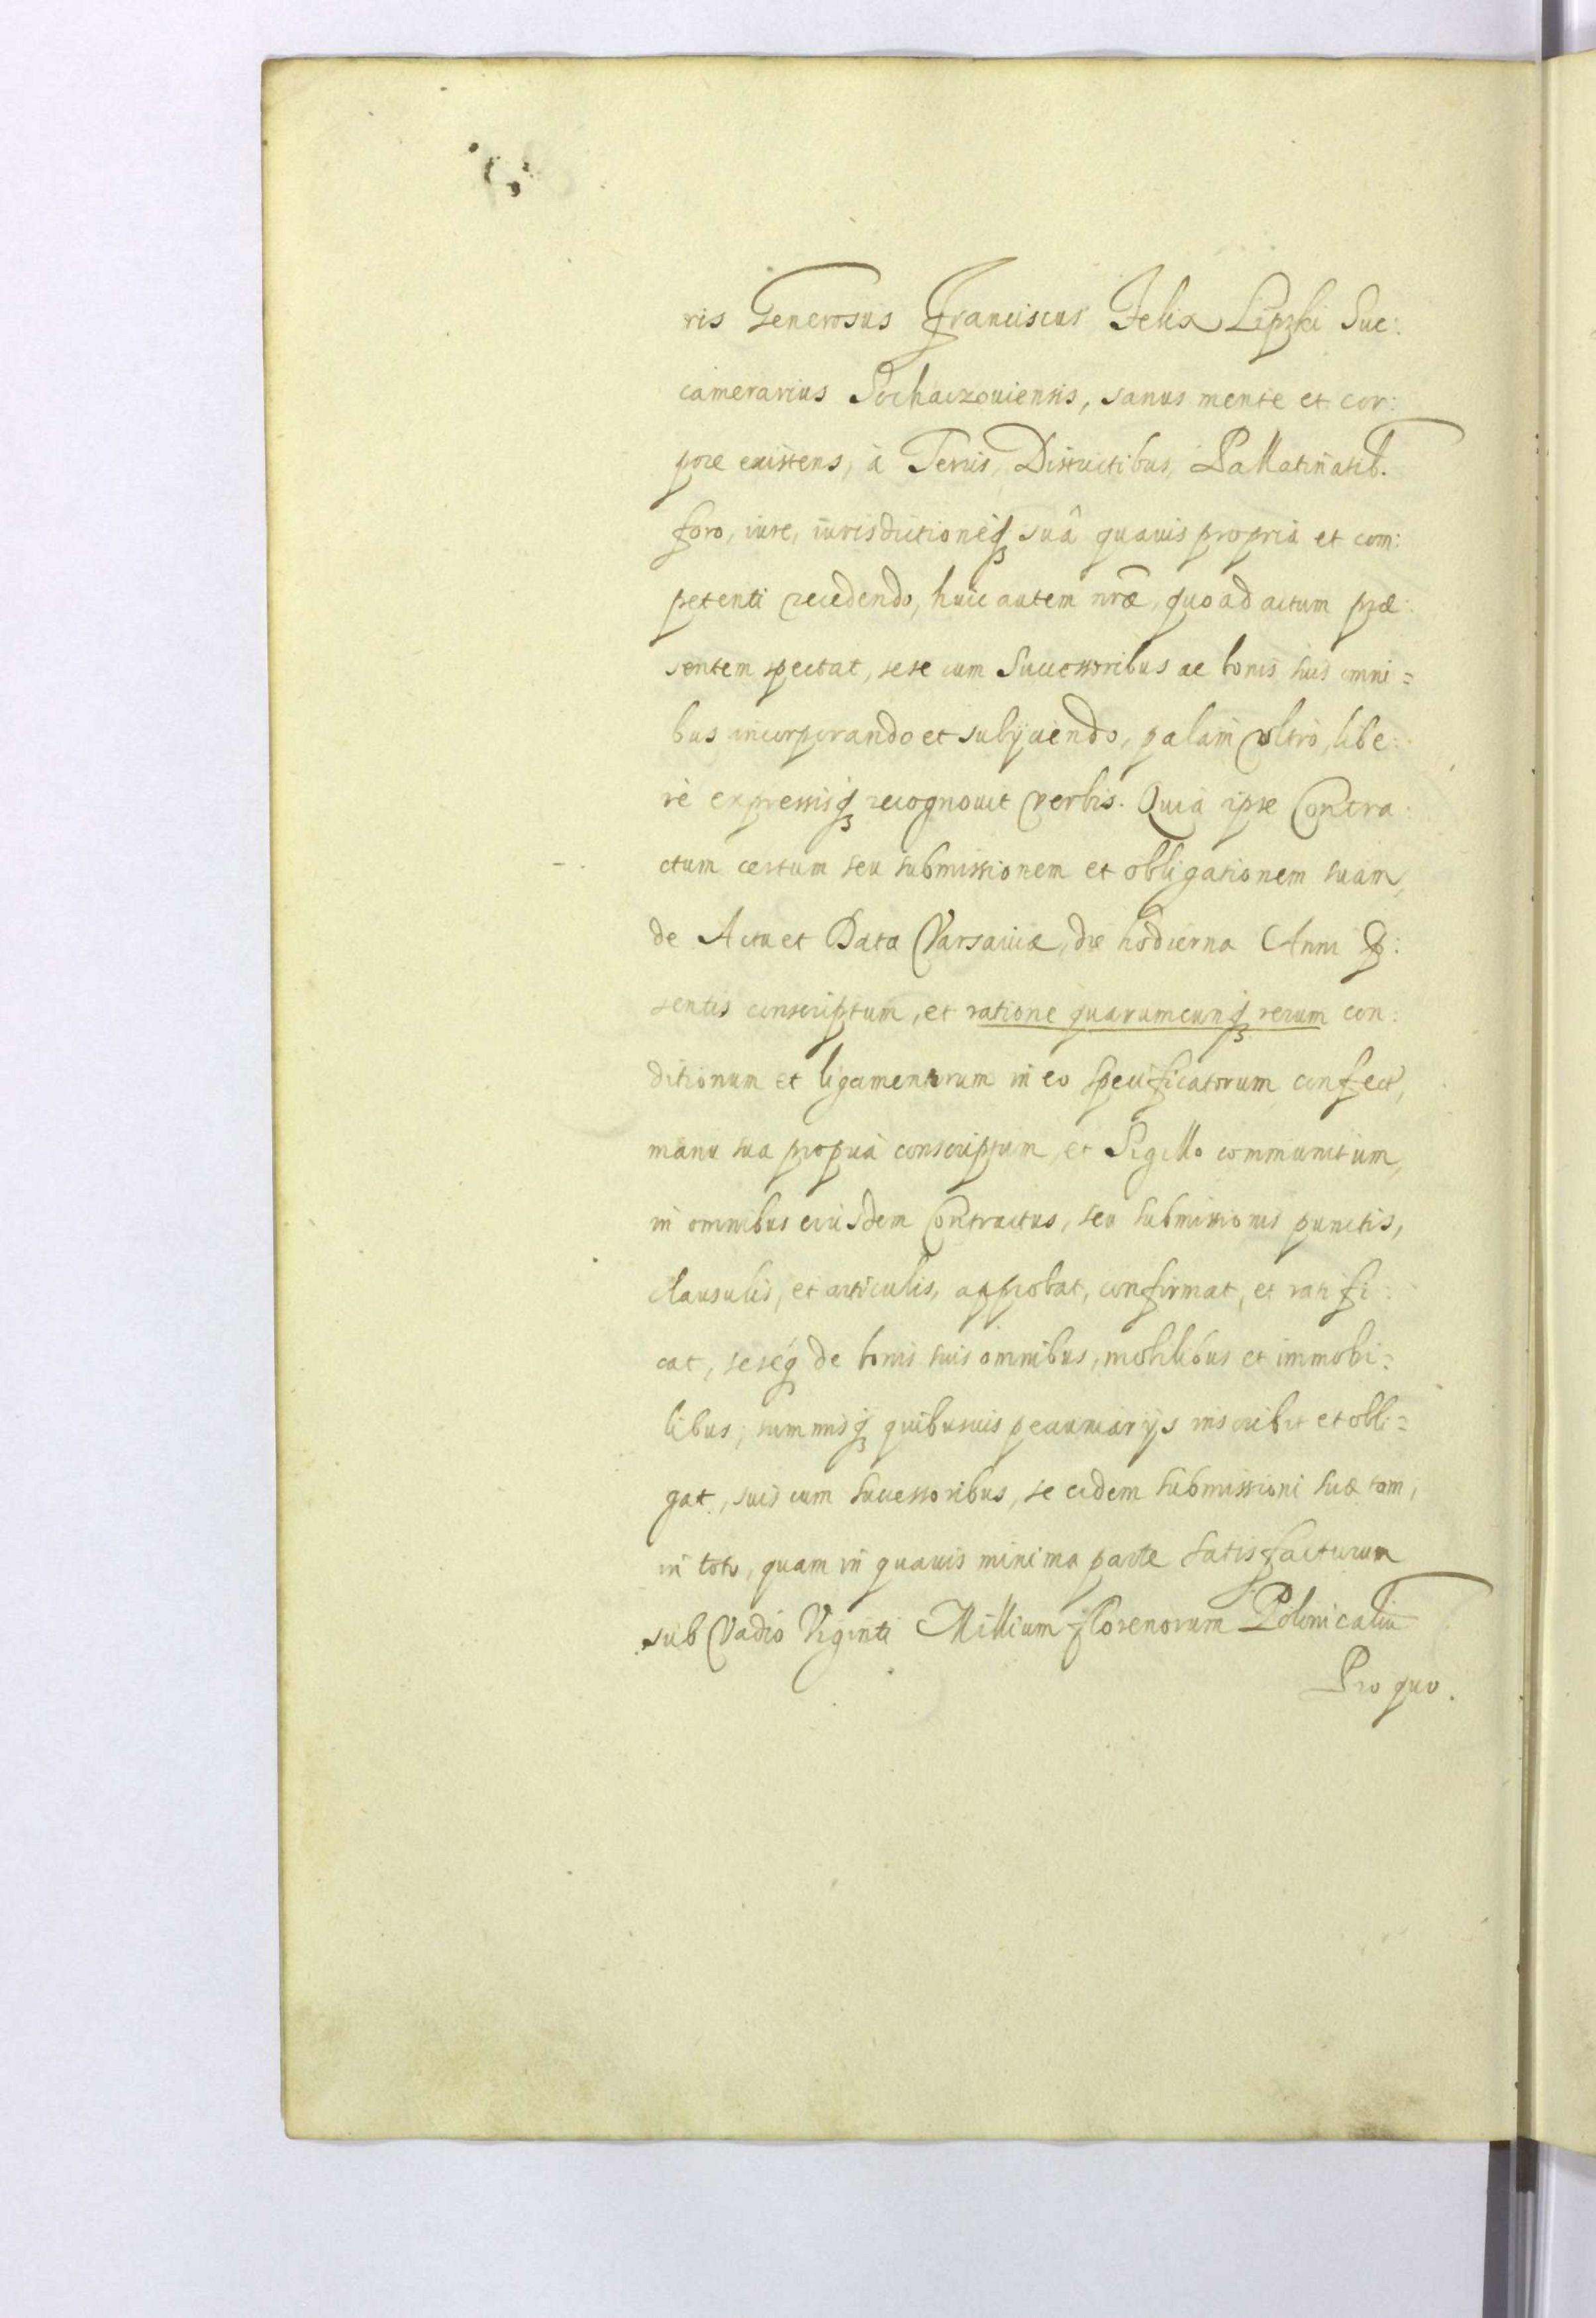 ris Generosus Franciscus Felix Lipski Suc:
camerarius Sochaczouiensis, sanus mente et cor:
pore existens, à Terris, Districtibus, Pallatinatib.
foro, iure, iurisdictioneq3 suâ quauis propriâ et com:
petenti recedendo, huic autem nræ, quo ad actum præ:
sentem spectat, sese cum Successoribus ac bonis suis omni=
bus incorporando et subijciendo, palam vltrò, libe:
rè expressisq3 recognouit verbis. Quià ipse Contra:
ctum certum seu submissionem et obligationem suam,
de Actu et Data Varsauiæ, die hodierna Anni p:
sentis conscriptum, et ratione quarumcunq3 rerum con:
ditionum et ligamentorum in eo specificatorum confect,
manu sua propriâ conscriptum, et Sigillo communitum,
in omnibus eiusdem Contractus, seu submissionis punctis,
clausulis, et articulis, approbat, confirmat, et ratifi:
cat, seséq de bonis suis omnibus, mobilibus et immobi=
libus, summisq3 quibusuis pecuniarijs inscribit et obli=
gat, suis cum successoribus, se eidem submissioni suæ tam,
in toto, quam in quauis minima parte satisfacturum
sub Vadio Viginti Millium florenorum Polonicaliu
Pro quo.